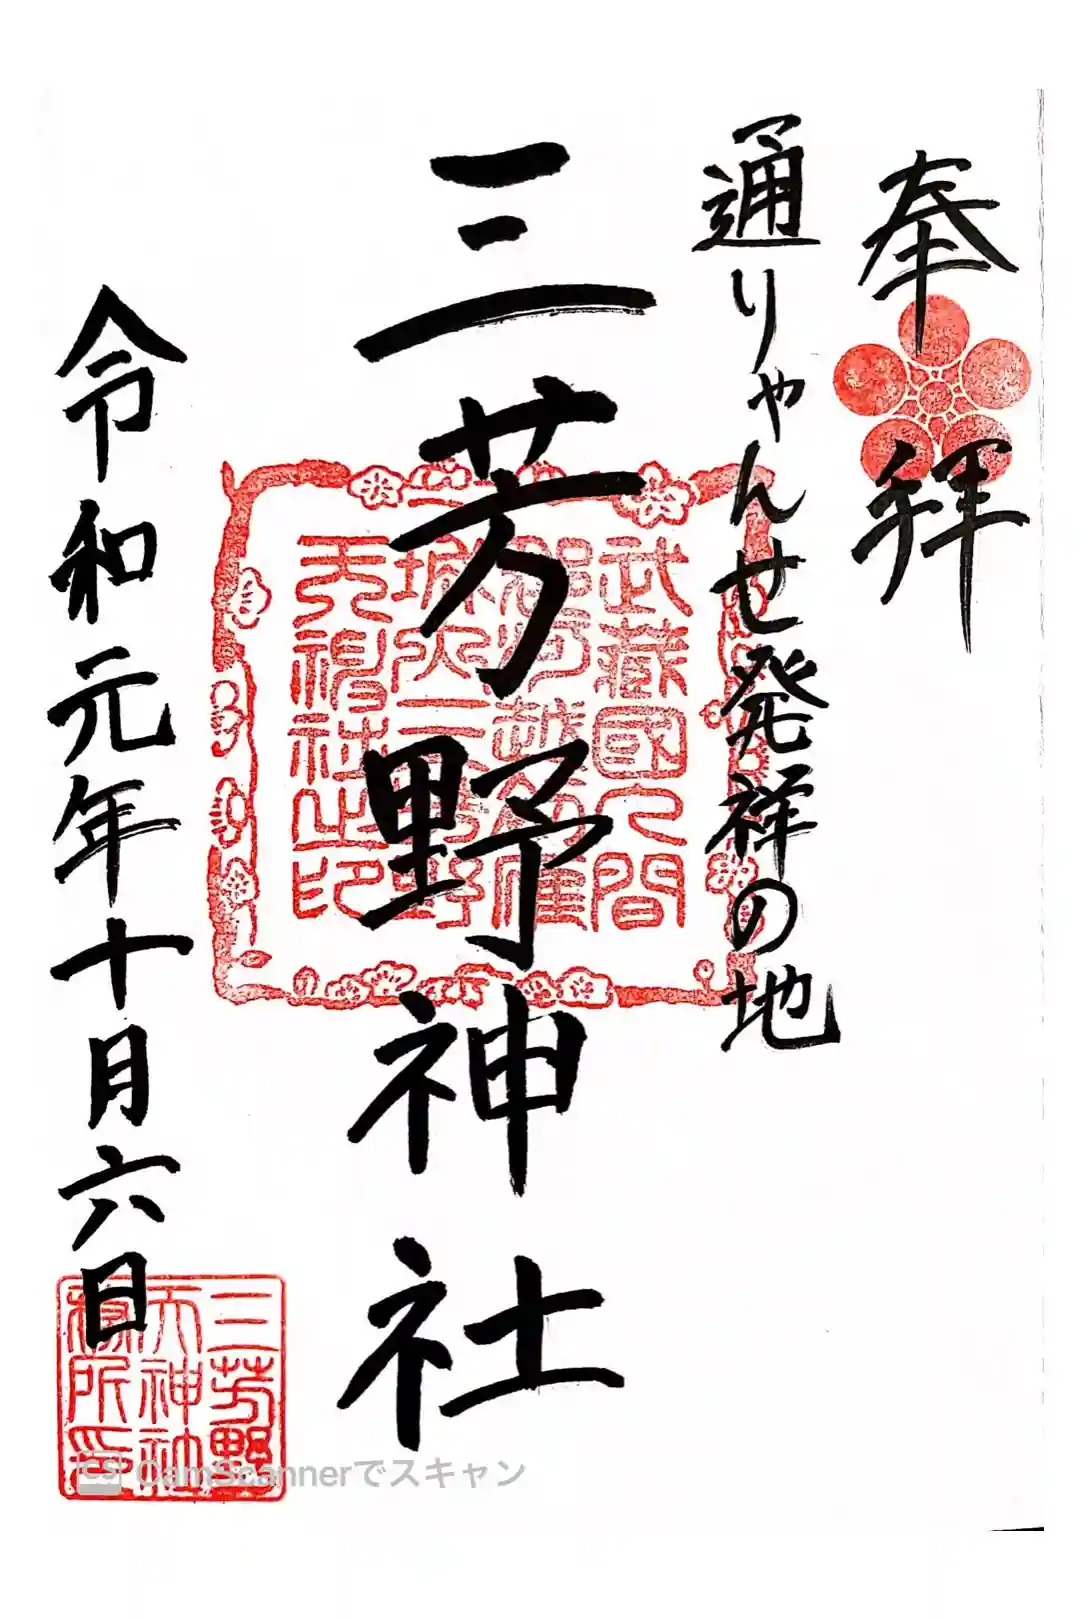 奉拝
通りゃんせ発祥の地
三芳野神社
令和元年十月六日
武蔵國入間
郡河越初雁
城内三芳野
天神社之印
三芳野
天神社
務所印
CS CamScannerでスキャン